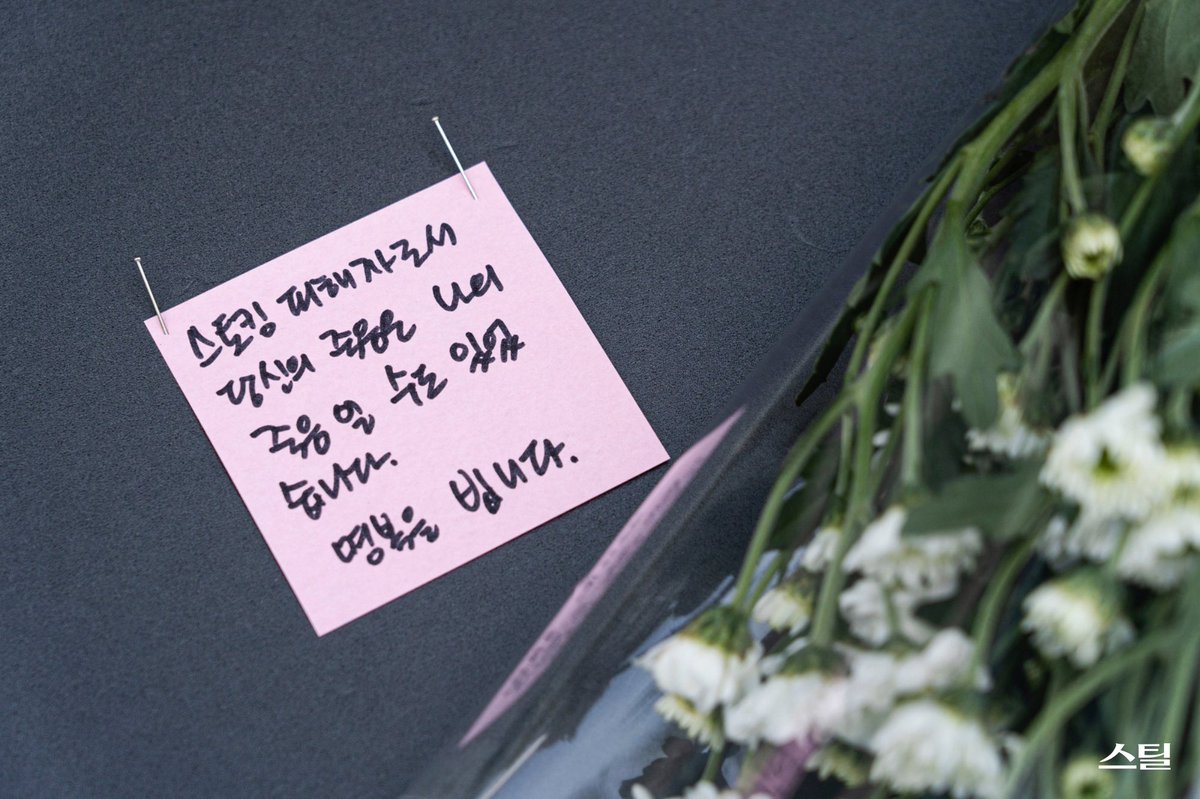 스토킹 피해자로서
당신의 죽음은 나의
죽음일 수도 있었
습니다.
명복을 빕니다.
스틸